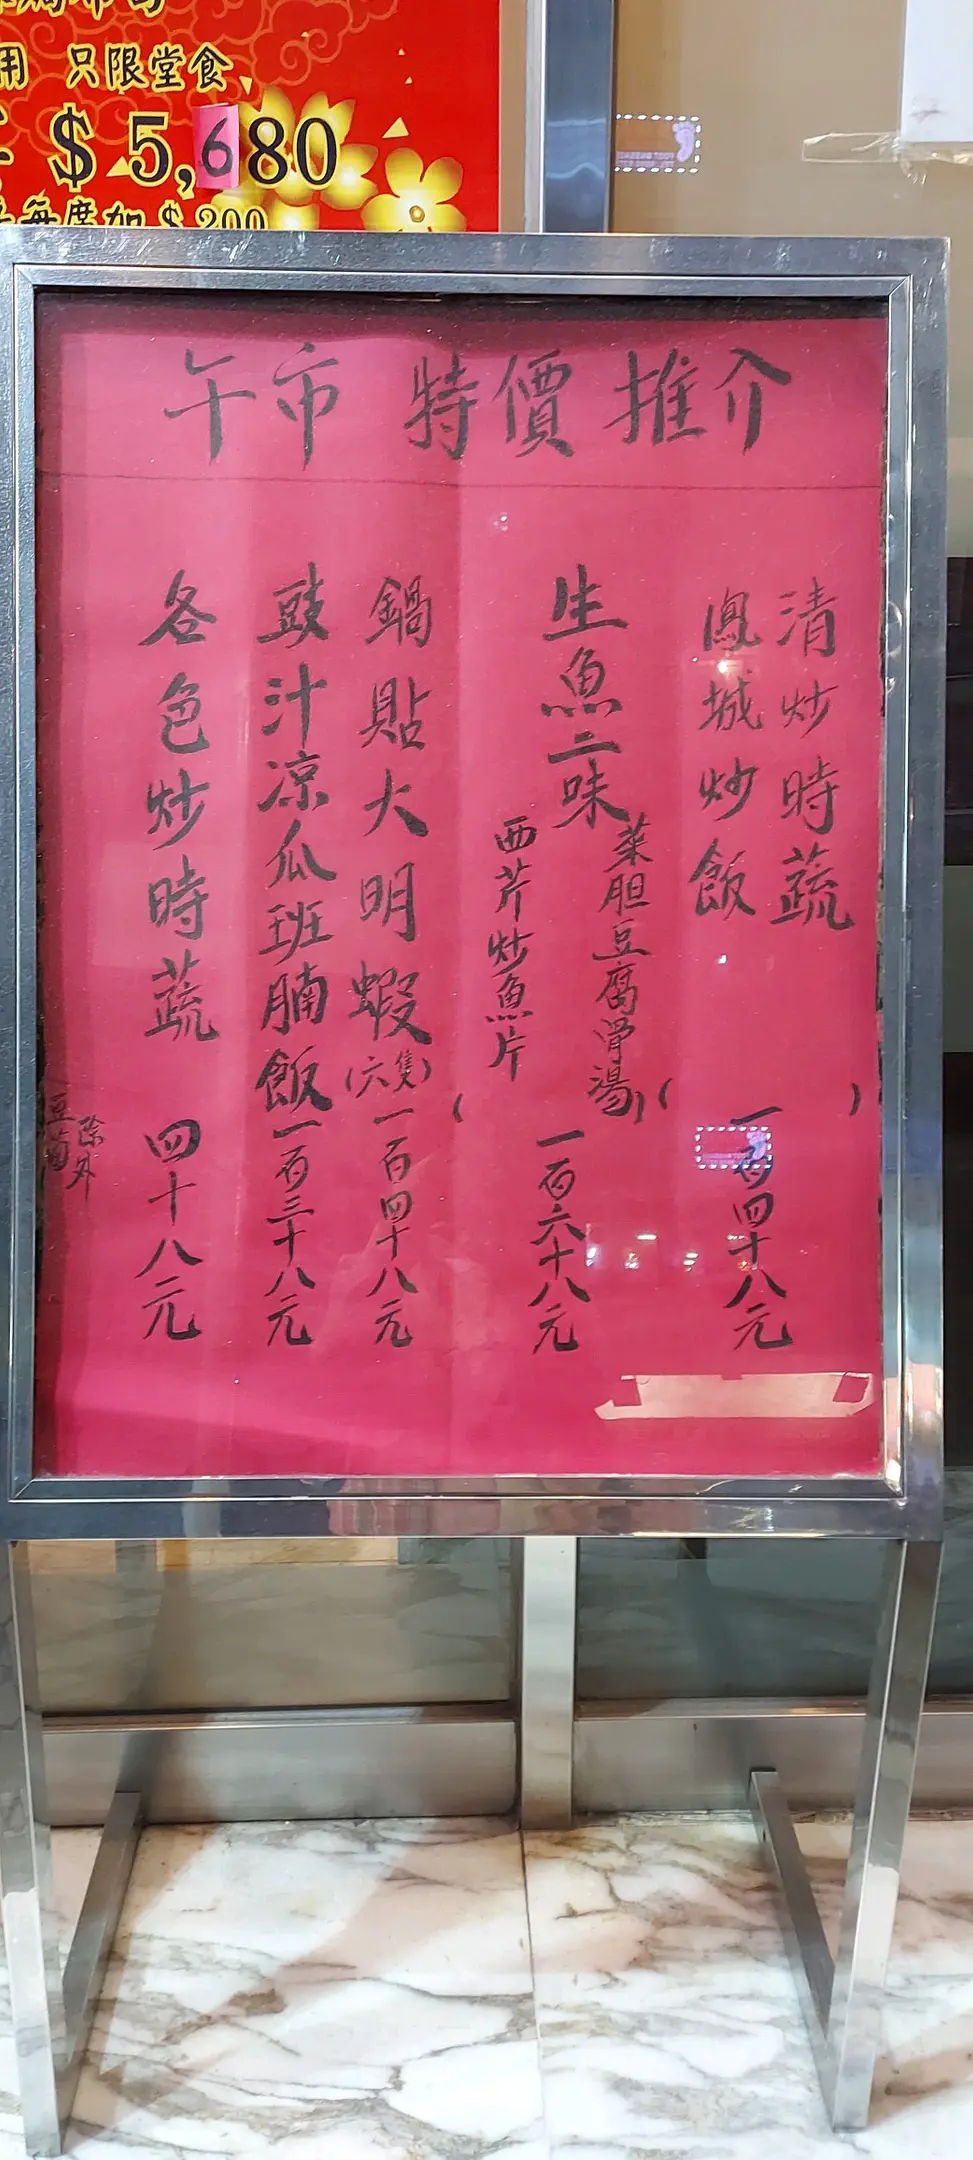 用 只限堂食
$5,680
每席加$200
午市 特價推介
清炒時蔬
鳳城炒飯
一百四十八元
生魚二味
菜胆豆腐滑湯
西芹炒魚片
一百六十八元
鍋貼大明蝦(六隻)一百四十八元
豉汁凉瓜班腩飯一百三十八元
各色炒時蔬 四十八元
除外
豆苗